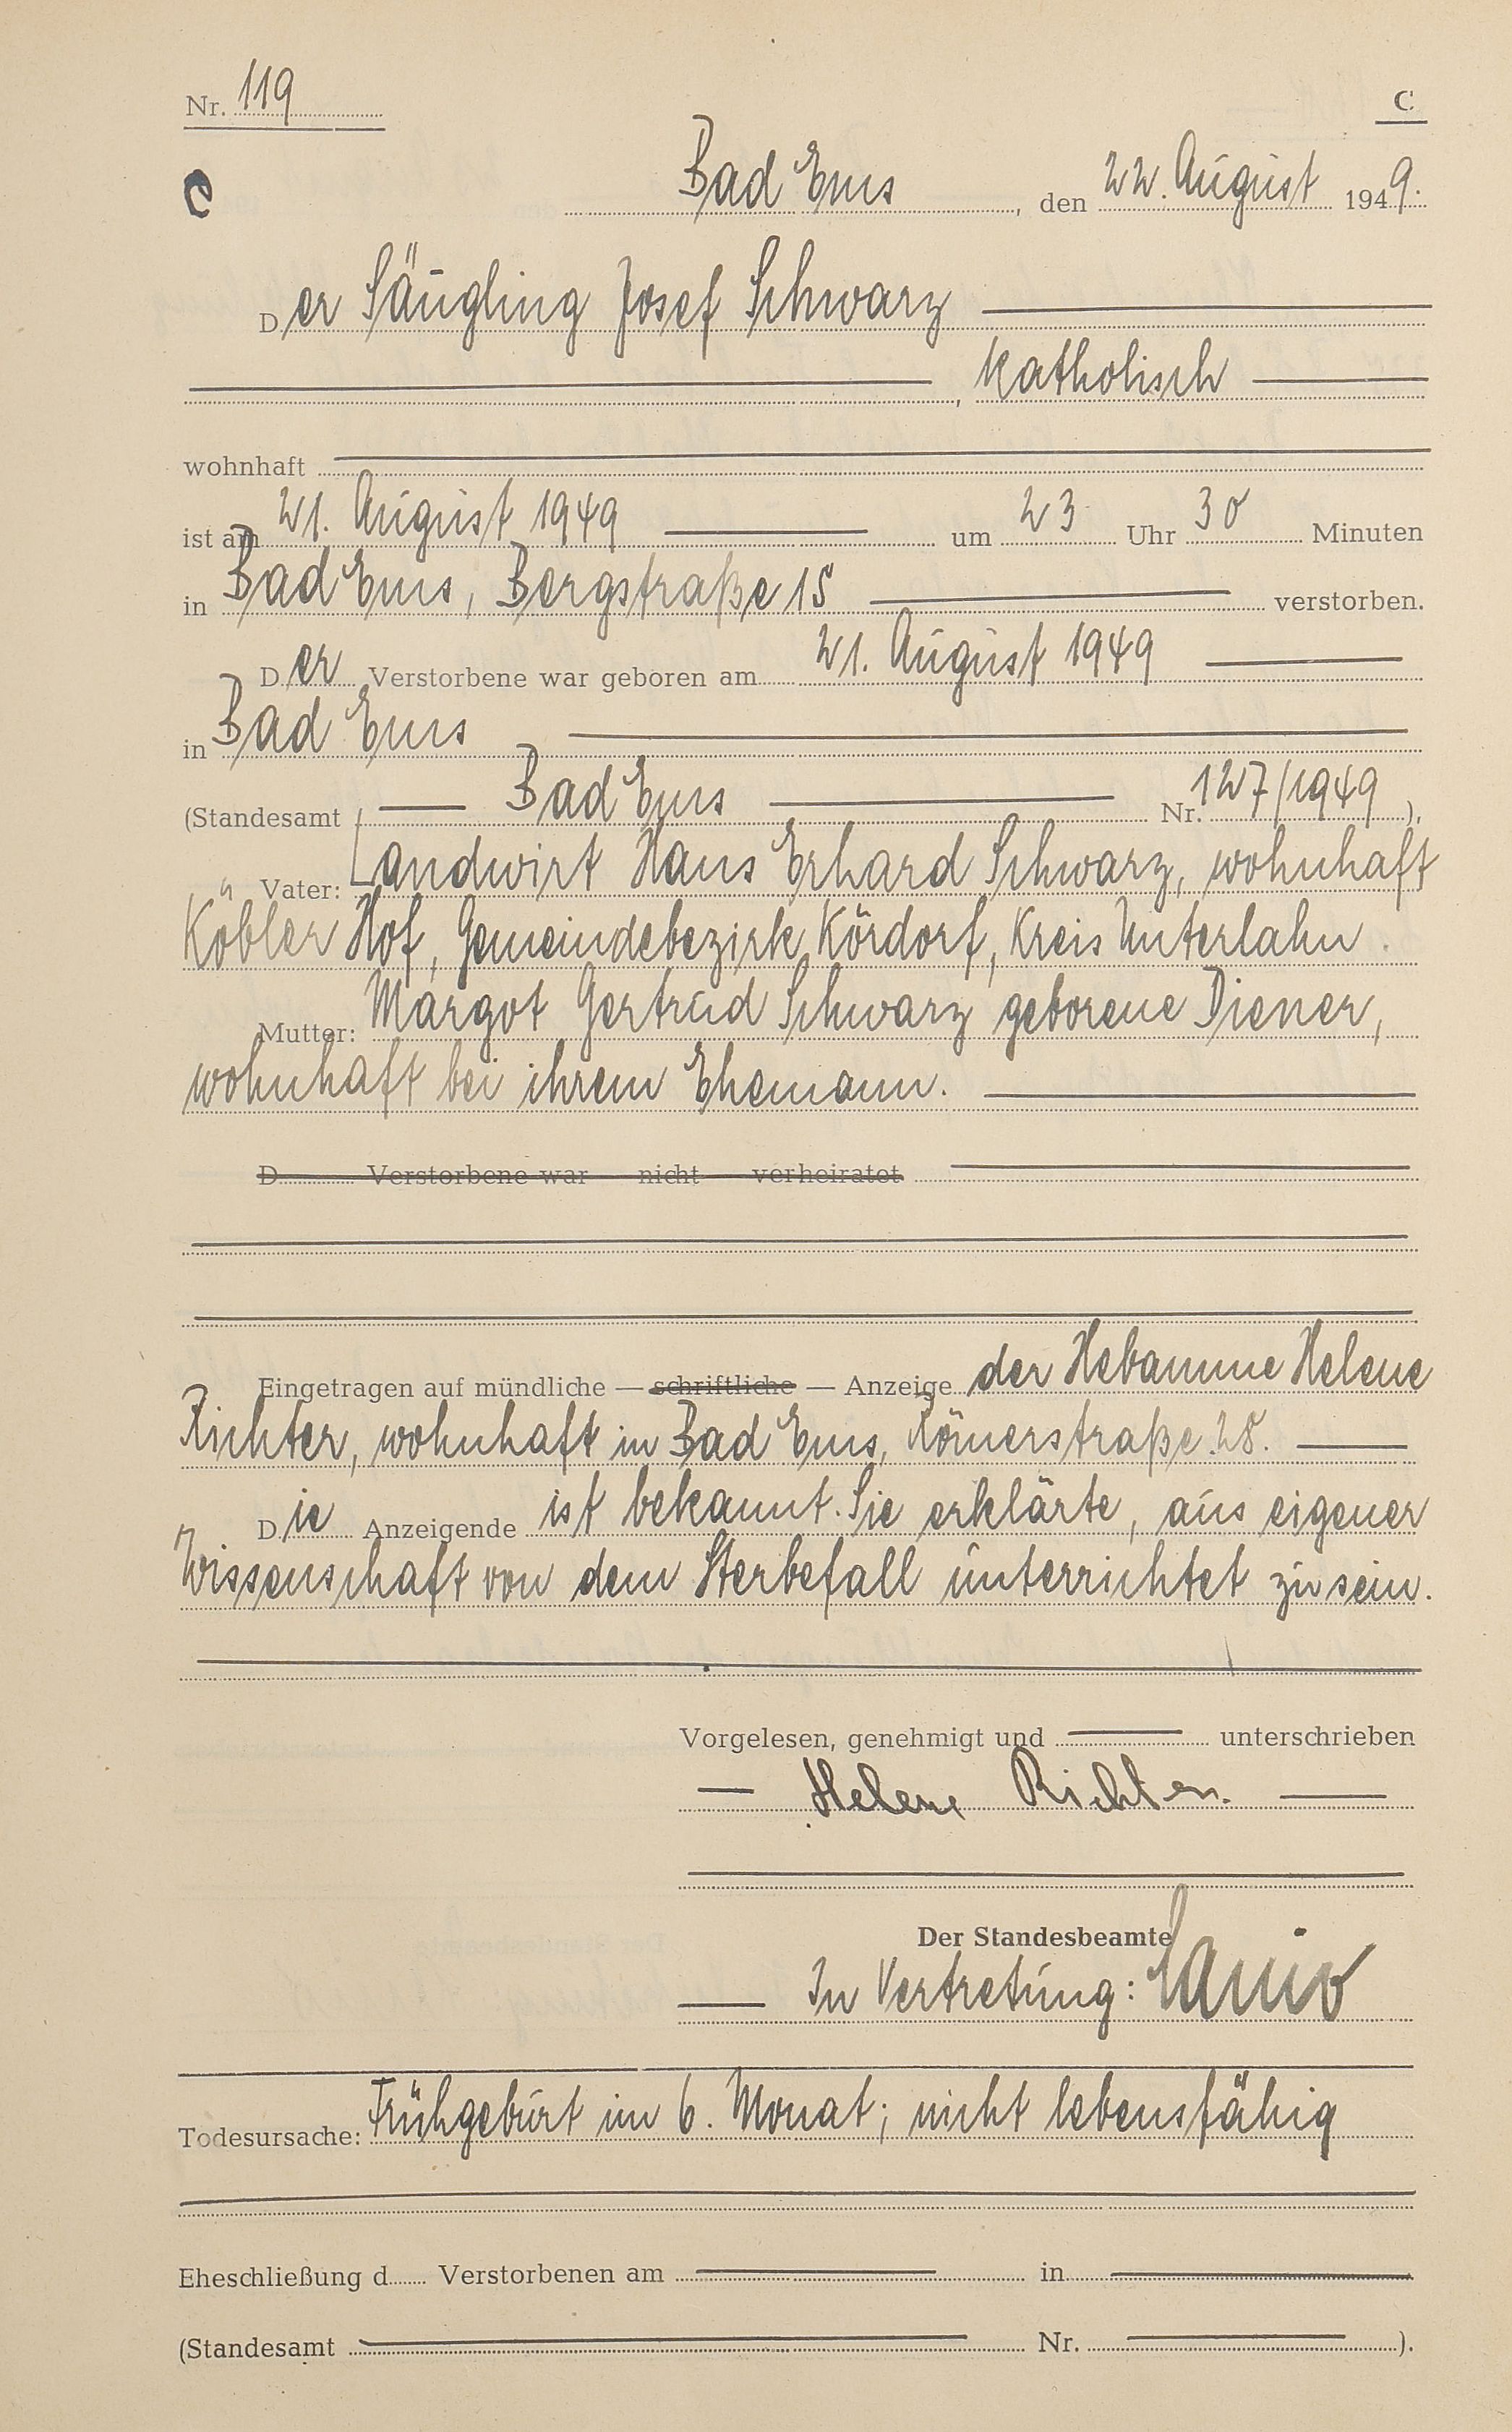 Nr. 119
C
C
Bad Ems, den 22. August 1949.
Der Säugling Josef Schwarz
, katholisch
wohnhaft
ist am 21. August 1949 um 23 Uhr 30 Minuten
in Bad Ems, Bergstraße 15 verstorben.
Der Verstorbene war geboren am 21. August 1949
in Bad Ems
(Standesamt Bad Ems Nr. 127/1949),
Vater: Landwirt Hans Erhard Schwarz, wohnhaft
Köbler Hof, Gemeindebezirk Kördorf, Kreis Unterlahn.
Mutter: Margot Gertrud Schwarz geborene Diener,
wohnhaft bei ihrem Ehemann.
D Verstorbene war nicht verheiratet
Eingetragen auf mündliche — schriftliche — Anzeige der Hebamme Helene
Richter, wohnhaft in Bad Ems, Römerstraße 28.
Die Anzeigende ist bekannt. Sie erklärte, aus eigener
Wissenschaft von dem Sterbefall unterrichtet zu sein.
Vorgelesen, genehmigt und unterschrieben
Helene Richter.
Der Standesbeamte
In Vertretung:
Todesursache: Frühgeburt im 6. Monat; nicht lebensfähig
Eheschließung d Verstorbenen am in
(Standesamt Nr. ).